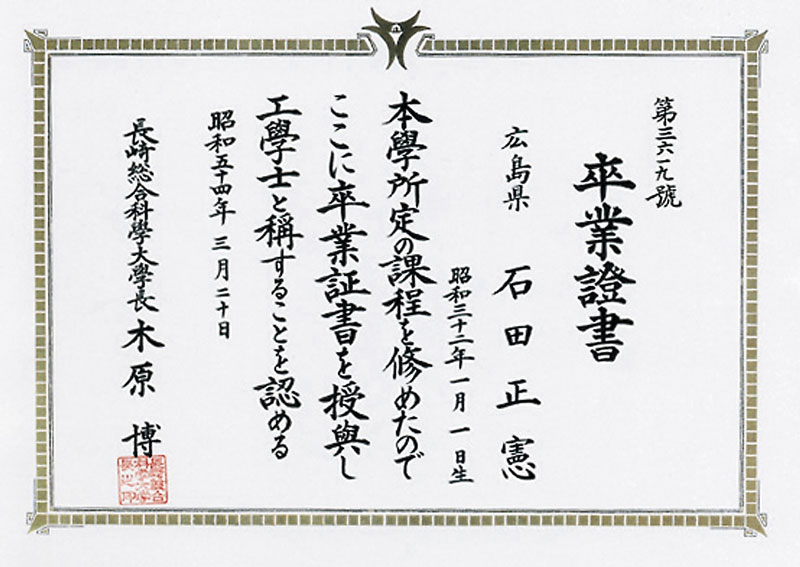 第三六一九號
卒業證書
広島県 石田正憲
昭和三十二年一月一日生
本學所定の課程を修めたので
ここに卒業証書を授與し
工學士と稱することを認める
昭和五十四年三月二十日
長崎総合科學大學長 木原博